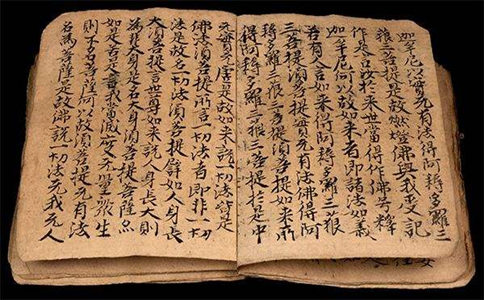 迦牟尼以實无有法得阿耨多羅三
藐三菩提是故燃燈佛與我受記
作是言汝於來世當得作佛号釋
迦牟尼何以故如來者即諸法如義
若有人言如來得阿耨多羅三藐
三菩提須菩提實无有法佛得阿
耨多羅三藐三菩提須菩提如來所
得阿耨多羅三藐三菩提於是中
无實无虛是故如來說一切法皆是
佛法須菩提所言一切法者即非一切
法是故名一切法須菩提譬如人身長
大須菩提言世尊如來說人身長大則
為非大身是名大身須菩提菩薩亦
如是若言我當滅度无量衆生
則不名菩薩何以故須菩提无有法
名為菩薩是故佛說一切法无我无人